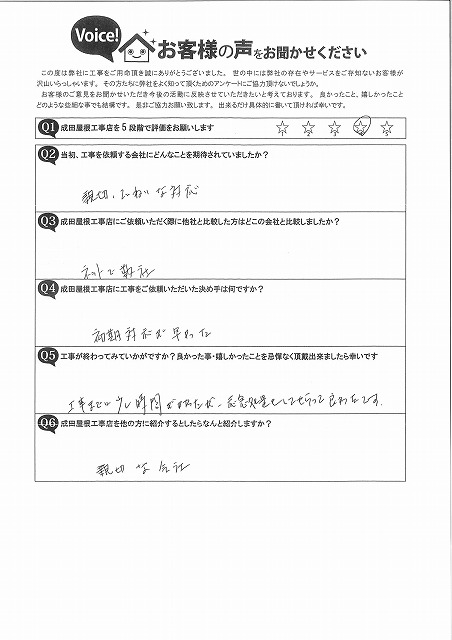 Voice!
お客様の声をお聞かせください
この度は弊社に工事をご用命頂き誠にありがとうございました。 世の中には弊社の存在やサービスをご存知ないお客様が
沢山いらっしゃいます。 その方たちに弊社をよく知って頂くためのアンケートにご協力頂けないでしょうか。
お客様のご意見をお聞かせいただき今後の活動に反映させていただきたいと考えております。 良かったこと、嬉しかったこと
どのような些細な事でも結構です。 是非ご協力お願い致します。 出来るだけ具体的に書いて頂ければ幸いです。
Q1 成田屋根工事店を5段階で評価をお願いします
1 2 3 4 5
Q2 当初、工事を依頼する会社にどんなことを期待されていましたか?
親切、ていねいな対応
Q3 成田屋根工事店にご依頼いただく際に他社と比較した方はどこの会社と比較しましたか?
ネットで数社
Q4 成田屋根工事店に工事をご依頼いただいた決め手は何ですか?
初期対応が早かった
Q5 工事が終わってみていかがですか?良かった事・嬉しかったことを忌憚なく頂戴出来ましたら幸いです
工事までに少し時間がかかったが、応急処置をしてもらって良かったです。
Q6 成田屋根工事店を他の方に紹介するとしたらなんと紹介しますか?
親切な会社